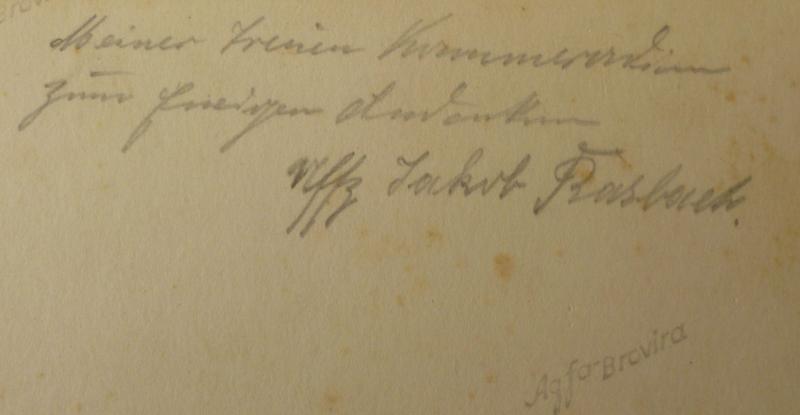 Meiner treuen Kammeradin
zum Ewigen Andenken
Uffz Jakob Rasbach.
Agfa-Brovira